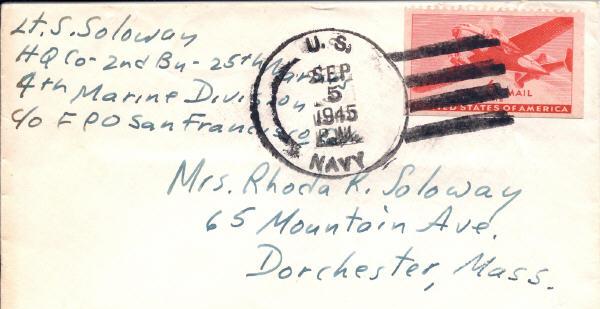 Lt. S. Soloway
HQ Co - 2nd Bn - 25th Marines
4th Marine Division
c/o FPO San Francisco
U. S.
SEP
5
1945
P.M.
NAVY
MAIL
UNITED STATES OF AMERICA
Mrs. Rhoda K. Soloway
65 Mountain Ave.
Dorchester, Mass.